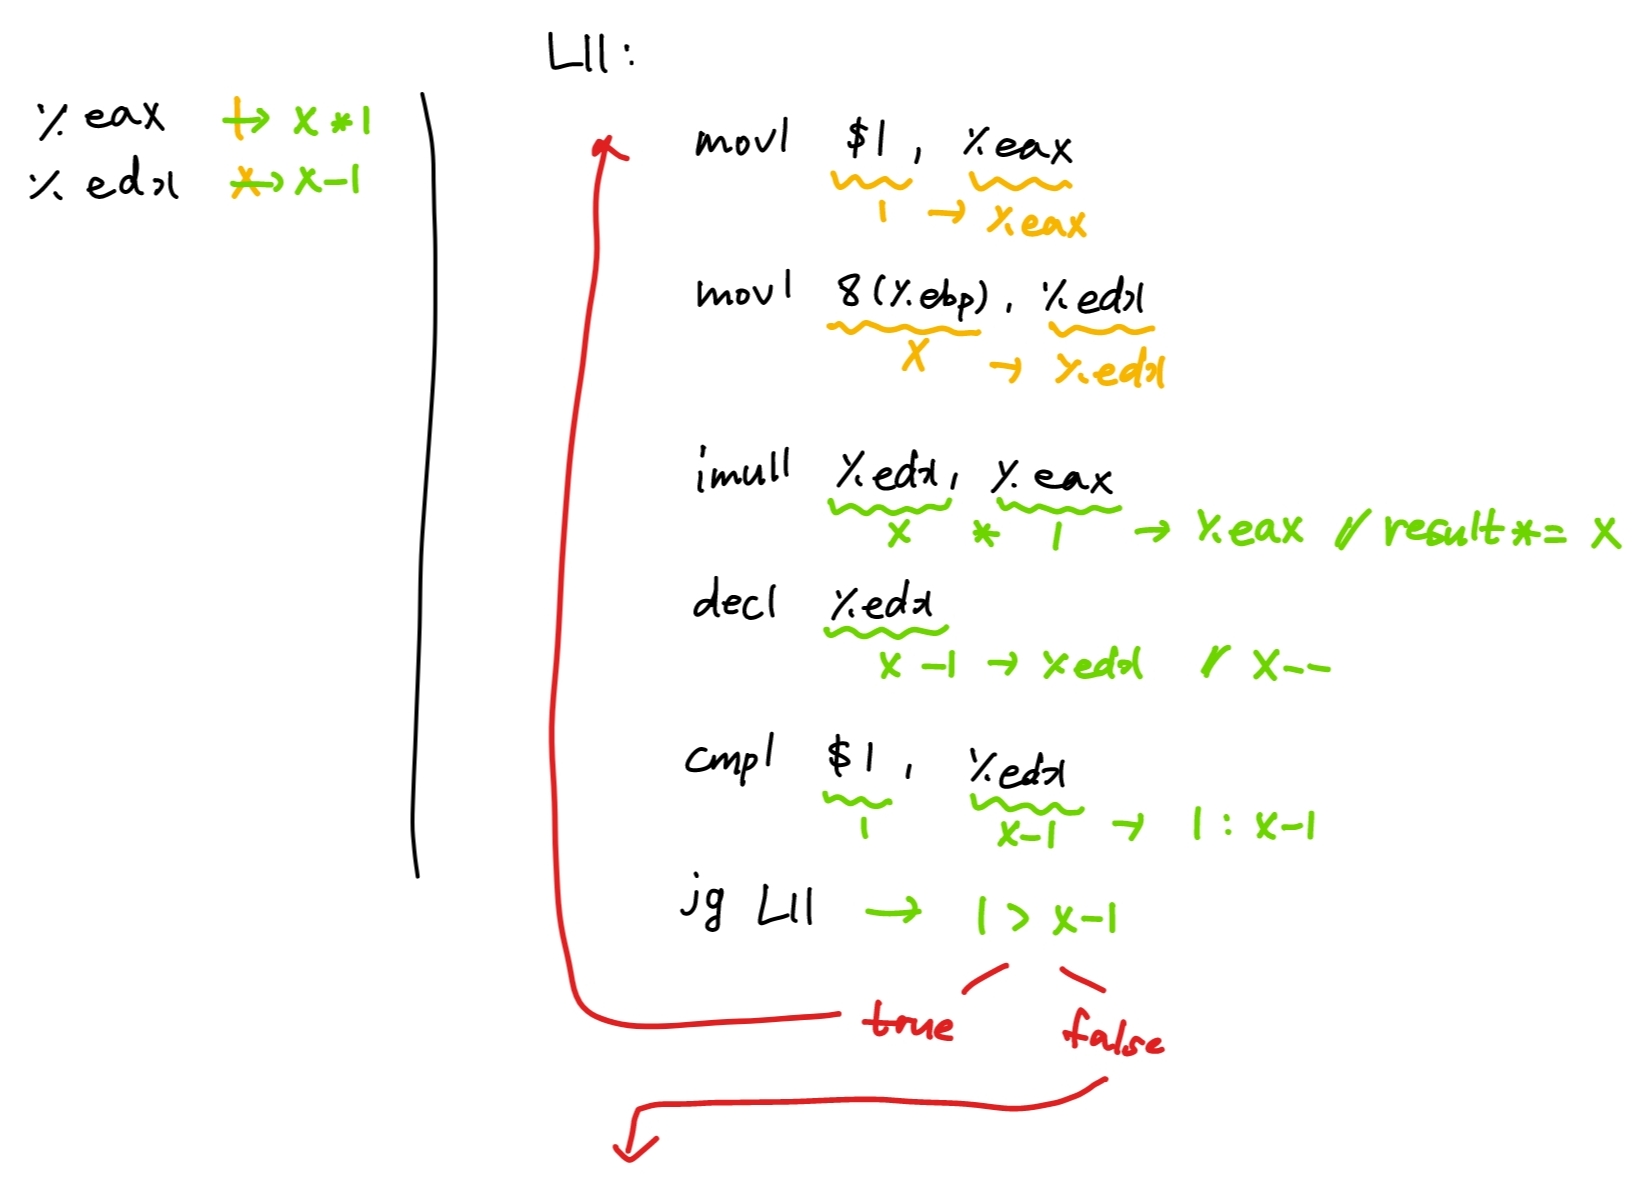 L11:
%eax 1→ x*1
%edx x→ x-1
movl $1, %eax
1 → %eax
movl 8(%ebp), %edx
x → %edx
imull %edx, %eax
x * 1 → %eax // result *= x
decl %edx
x-1 → %edx // x--
cmpl $1, %edx
1 x-1 → 1 : x-1
jg L11 → 1 > x-1
true false